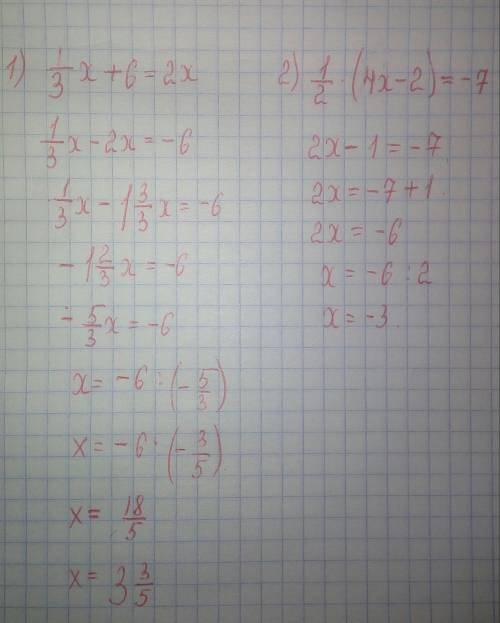 1) 1/3 x + 6 = 2x
1/3 x - 2x = -6
1/3 x - 1 3/3 x = -6
- 1 2/3 x = -6
- 5/3 x = -6
x = -6 : (- 5/3)
x = -6 · (- 3/5)
x = 18/5
x = 3 3/5
2) 1/2 · (4x - 2) = -7
2x - 1 = -7
2x = -7 + 1
2x = -6
x = -6 : 2
x = -3.